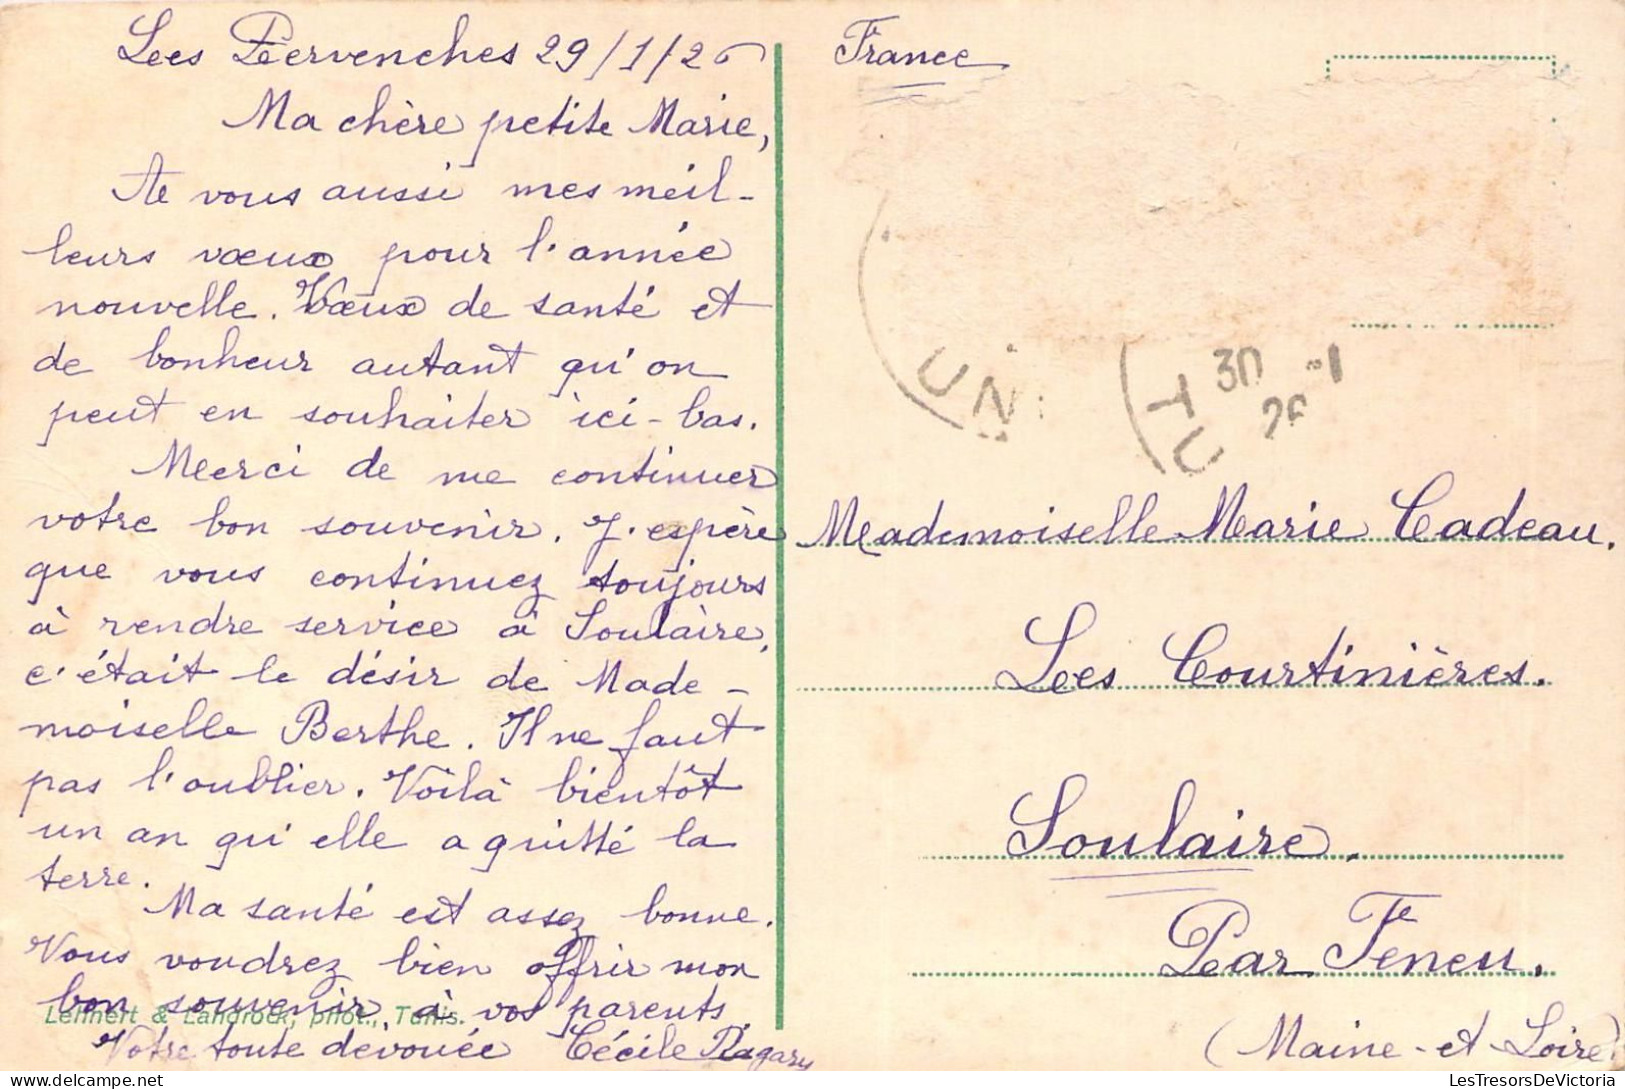 Les Pervenches 29/1/26
Ma chère petite Marie,
A vous aussi mes meil-
leurs vœux pour l'année
nouvelle. Vœux de santé et
de bonheur autant qu'on
peut en souhaiter ici-bas.
Merci de me continuer
votre bon souvenir. J'espère
que vous continuez toujours
à rendre service à Soulaire,
c'était le désir de Made-
moiselle Berthe. Il ne faut
pas l'oublier. Voilà bientôt
un an qu'elle a quitté la
terre.
Ma santé est assez bonne.
Vous voudrez bien offrir mon
bon souvenir à vos parents.
Lehnert & Landrock, phot., Tunis.
Votre toute dévouée Cécile
France
UN
TU
30 -1
26
Mademoiselle Marie Cadeau.
Les Courtinières.
Soulaire.
Par Feneu.
(Maine-et-Loire)
LesTresorsDeVictoria